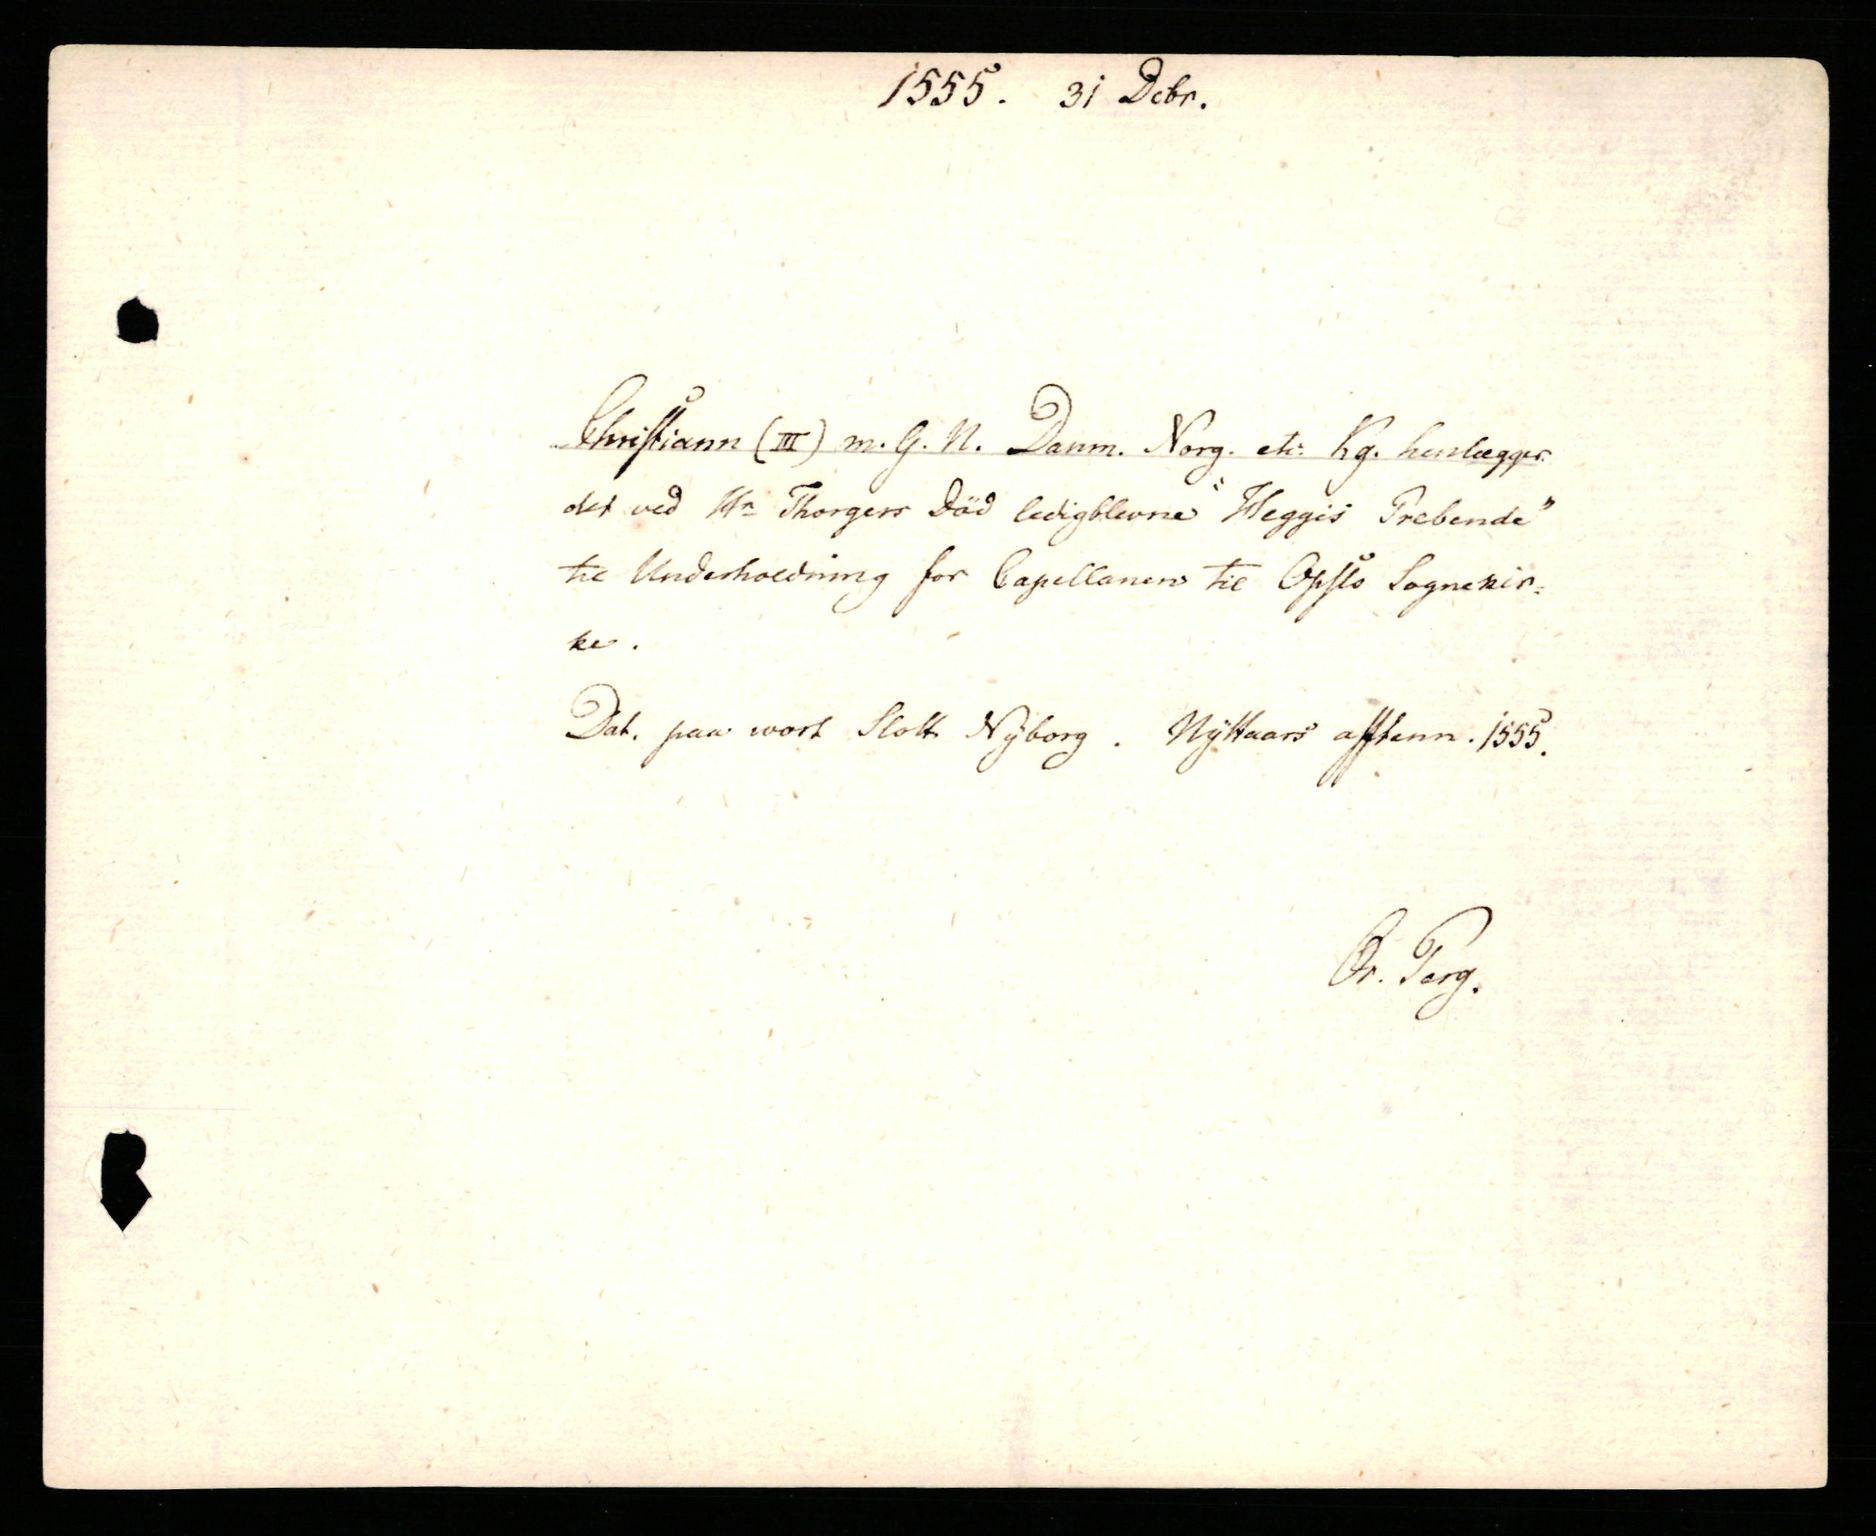 1555. 31 Debr.
Christiann (III) m. G. N. Danm. Norg. etc. Kg. henlægger
det ved Hr Thorgers Död ledigblevne "Heggis Prebende"
til Underholdning for Capellanen til Opslo Sognekir-
ke.
Dat. paa wort Slott Nÿborg. Nÿttaars afftenn. 1555.
Or. Perg.